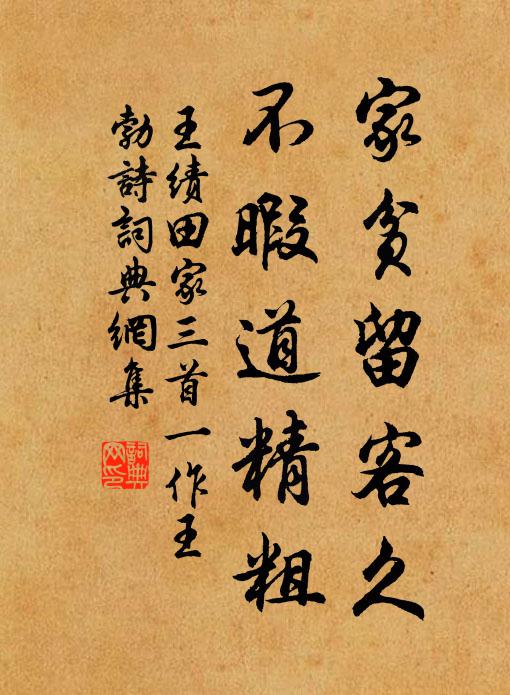 家贫留客久
不暇道精粗
王绩田家三首一作王
勃詩詞典網集
詞典
网印